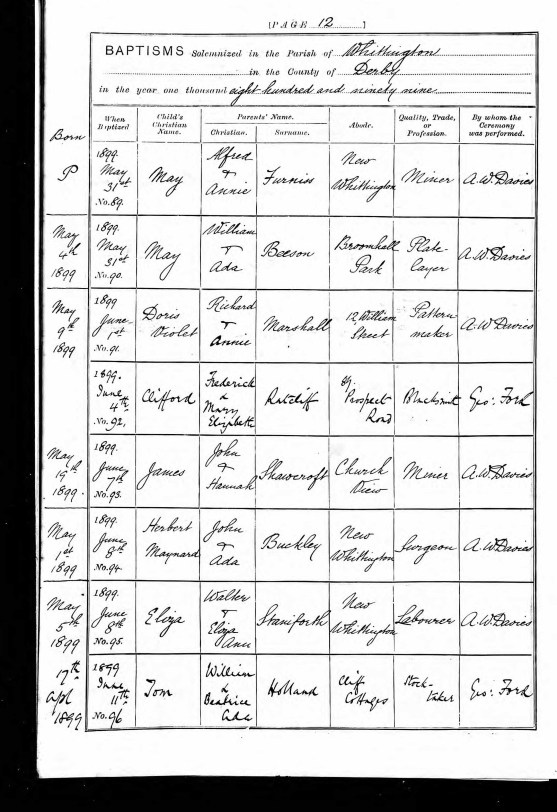 [PAGE 12]
BAPTISMS Solemnized in the Parish of Whittington
in the County of Derby
in the year one thousand eight hundred and ninety nine
Born
When Baptized
Child's Christian Name.
Parents' Name.
Christian.
Surname.
Abode.
Quality, Trade, or Profession.
By whom the Ceremony was performed.
P
1899. May 31st No. 89.
May
Alfred + Annie
Furniss
New Whittington
Miner
A.W. Davies
May 4th 1899
1899. May 31st No. 90.
May
William + Ada
Beeson
Broomhall Park
Plate-layer
A.W. Davies
May 9th 1899
1899 June 1st No. 91.
Doris Violet
Richard + Annie
Marshall
12 William Street
Pattern maker
A.W. Davies
1899. June 4th No. 92.
Clifford
Frederick & Mary Elizabeth
Ratcliff
89 Prospect Road
Blacksmith
Geo: Ford
May 19th 1899.
1899. June 7th No. 93.
James
John + Hannah
Shawcroft
Church View
Miner
A.W. Davies
May 1st 1899
1899. June 8th No. 94.
Herbert Maynard
John + Ada
Buckley
New Whittington
Surgeon
A.W. Davies
May 5th 1899
1899. June 8th No. 95.
Eliza
Walter + Eliza Ann
Staniforth
New Whittington
Labourer
A.W. Davies
17th Apl 1899
1899 June 11th No. 96
Tom
William & Beatrice Ada
Holland
Cliff Cottages
Stock-taker
Geo: Ford